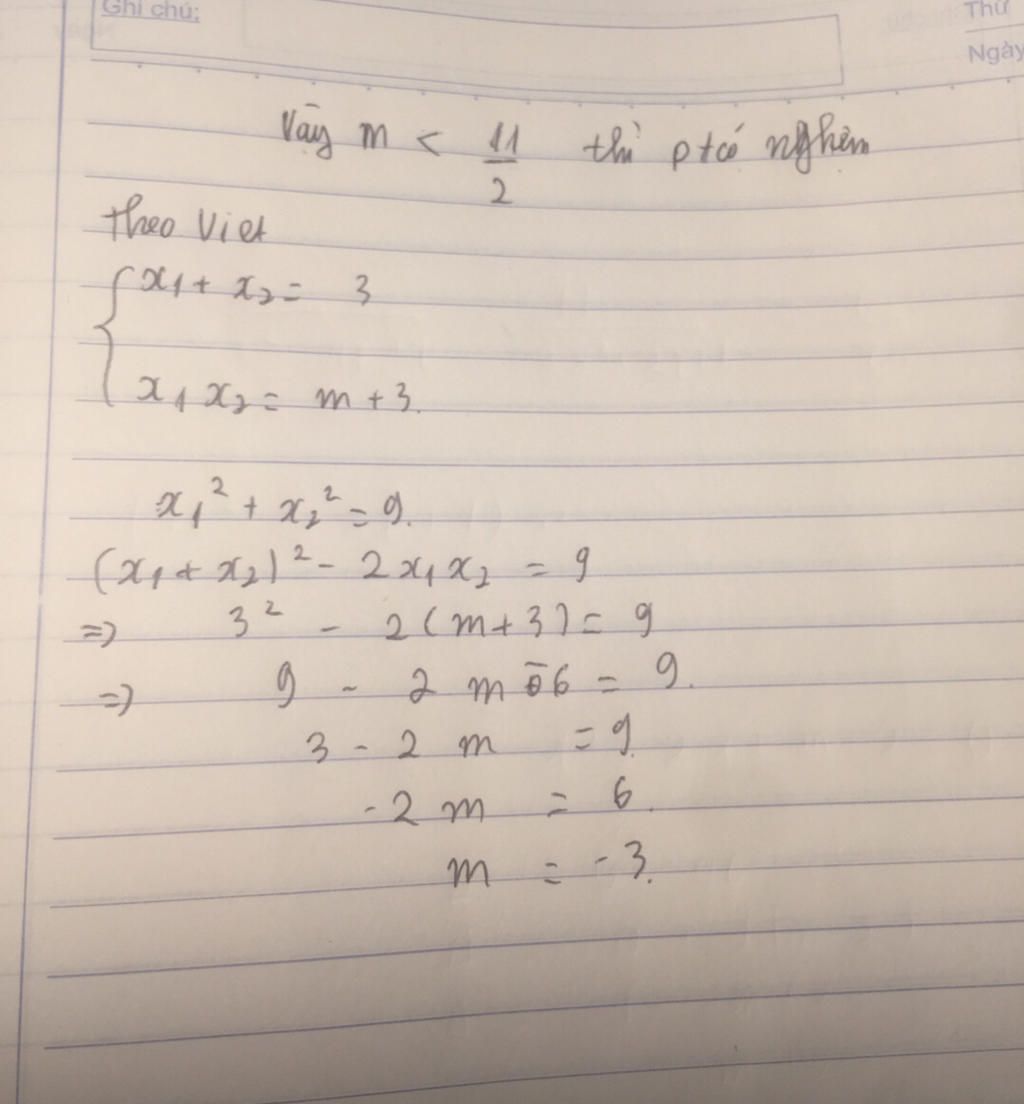 Ghi chú:
Thứ
Ngày
Vậy m < 11/2 thì pt có nghiệm
Theo Viet
{ x₁ + x₂ = 3
x₁ x₂ = m + 3.
x₁² + x₂² = 9.
(x₁ + x₂)² - 2x₁ x₂ = 9
=> 3² - 2(m+3) = 9
=> 9 - 2m - 6 = 9.
3 - 2m = 9.
-2m = 6.
m = -3.